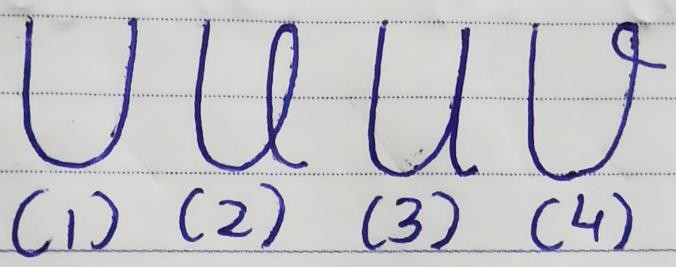 U U U U
(1) (2) (3) (4)